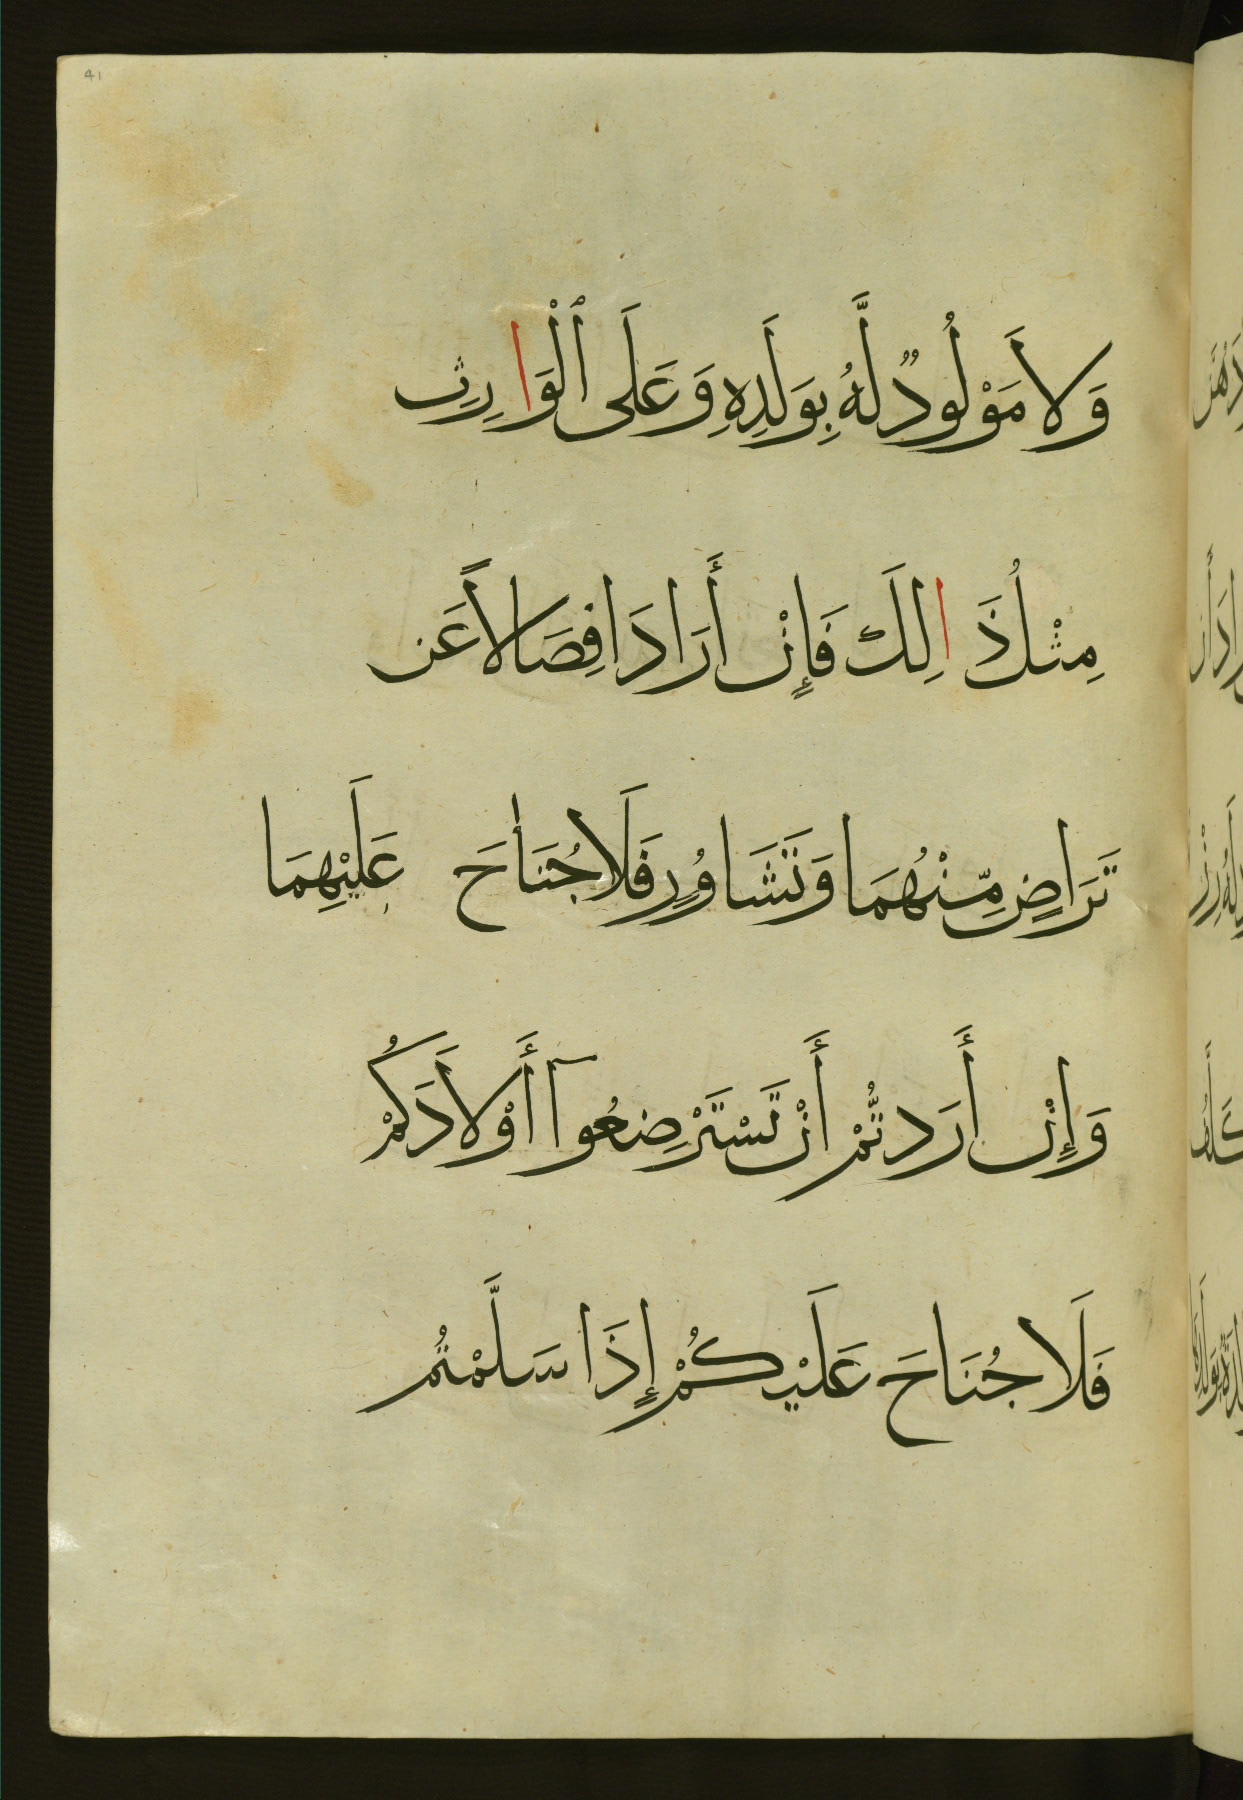 41
وَلَا مَوْلُودٌ لَّهُ بِوَلَدِهِ وَعَلَى ٱلْوَارِثِ
مِثْلُ ذَالِكَ فَإِنْ أَرَادَا فِصَالًا عَن
تَرَاضٍ مِّنْهُمَا وَتَشَاوُرٍ فَلَا جُنَاحَ عَلَيْهِمَا
وَإِنْ أَرَدتُّمْ أَنْ تَسْتَرْضِعُوآ أَوْلَادَكُمْ
فَلَا جُنَاحَ عَلَيْكُمْ إِذَا سَلَّمْتُم